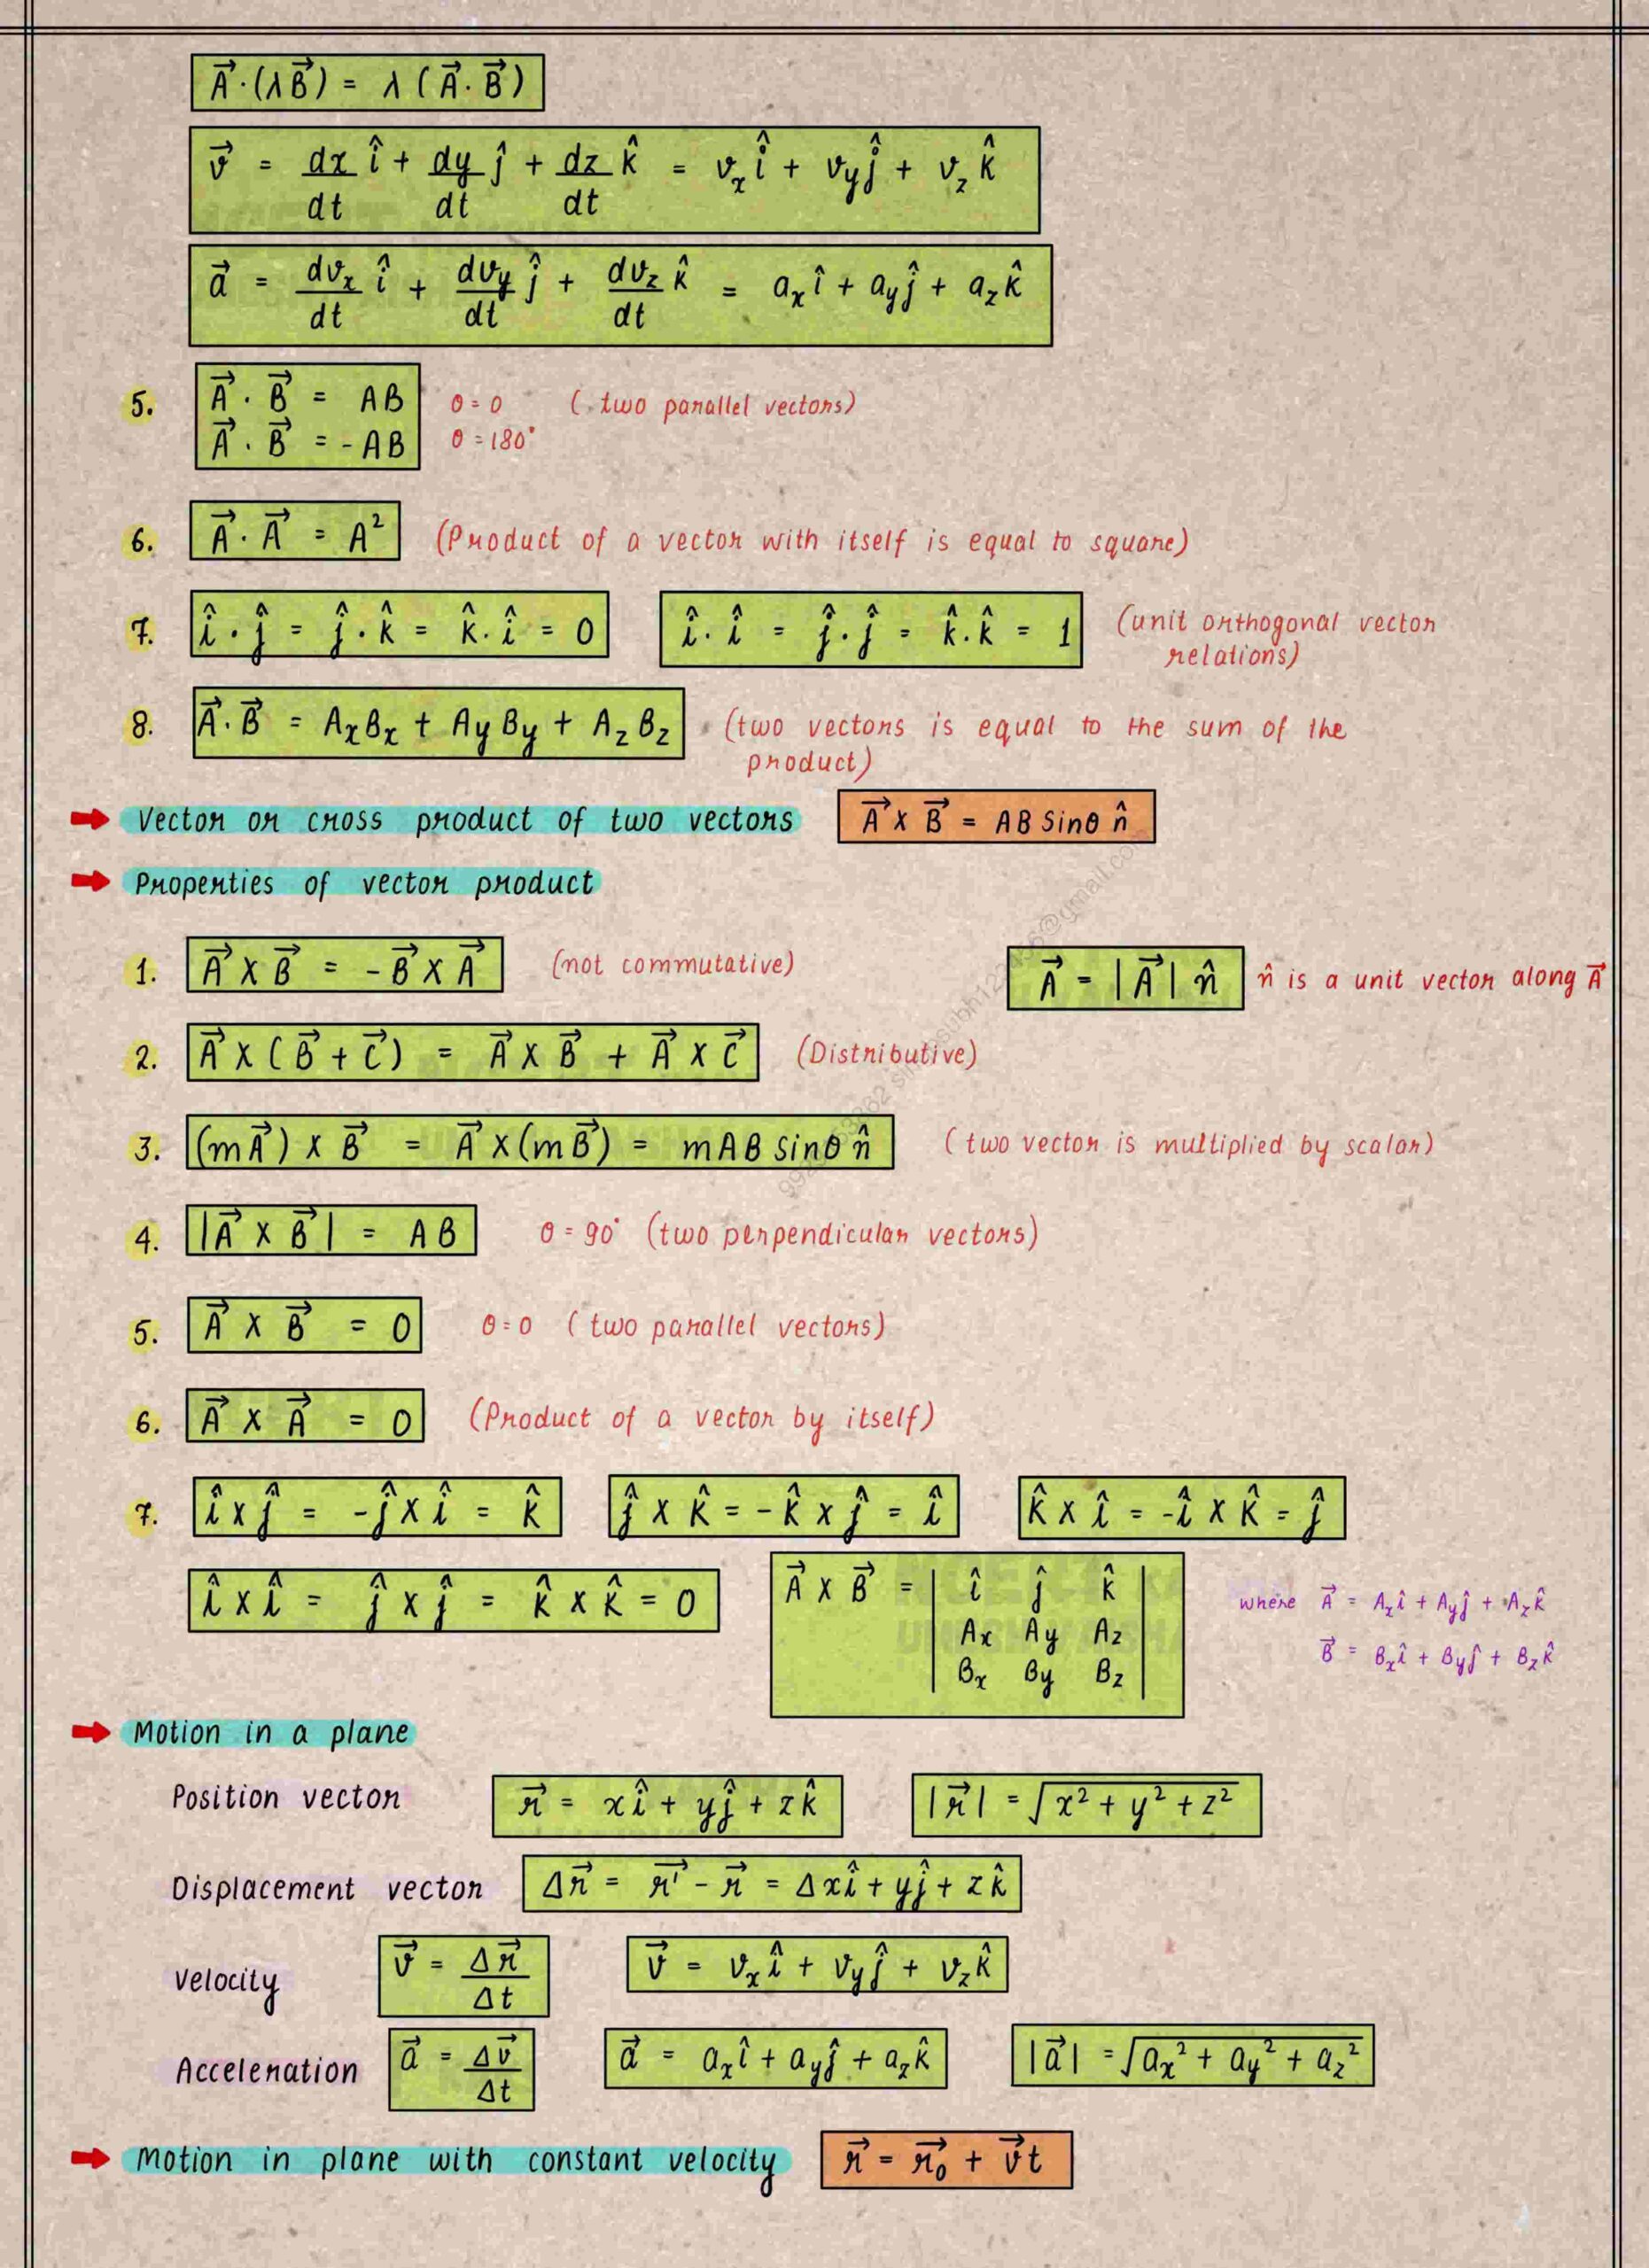 A⃗·(λB⃗) = λ(A⃗·B⃗)
v⃗ = dx/dt î + dy/dt ĵ + dz/dt k̂ = vₓî + v_yĵ + v_z k̂
a⃗ = dvₓ/dt î + dv_y/dt ĵ + dv_z/dt k̂ = aₓî + a_yĵ + a_z k̂
5. A⃗ · B⃗ = AB θ = 0 (two parallel vectors)
A⃗ · B⃗ = - AB θ = 180°
6. A⃗ · A⃗ = A² (Product of a vector with itself is equal to square)
7. î · ĵ = ĵ · k̂ = k̂ · î = 0 î · î = ĵ · ĵ = k̂ · k̂ = 1 (unit orthogonal vector
relations)
8. A⃗ · B⃗ = AₓBₓ + A_yB_y + A_zB_z (two vectors is equal to the sum of the
product)
Vector or cross product of two vectors A⃗ × B⃗ = AB Sinθ n̂
Properties of vector product
1. A⃗ × B⃗ = - B⃗ × A⃗ (not commutative) A⃗ = |A⃗| n̂ n̂ is a unit vector along A⃗
2. A⃗ × (B⃗ + C⃗) = A⃗ × B⃗ + A⃗ × C⃗ (Distributive)
3. (mA⃗) × B⃗ = A⃗ × (mB⃗) = mAB sinθ n̂ (two vector is multiplied by scalar)
4. |A⃗ × B⃗| = AB θ = 90° (two perpendicular vectors)
5. A⃗ × B⃗ = 0 θ = 0 (two parallel vectors)
6. A⃗ × A⃗ = 0 (Product of a vector by itself)
7. î × ĵ = -ĵ × î = k̂ ĵ × k̂ = - k̂ × ĵ = î k̂ × î = -î × k̂ = ĵ
î × î = ĵ × ĵ = k̂ × k̂ = 0 A⃗ × B⃗ = | î ĵ k̂ | where A⃗ = Aₓî + A_yĵ + A_z k̂
Aₓ A_y A_z
Bₓ B_y B_z B⃗ = Bₓî + B_yĵ + B_z k̂
Motion in a plane
Position vector r⃗ = xî + yĵ + zk̂ |r⃗| = √(x² + y² + z²)
Displacement vector Δr⃗ = r⃗' - r⃗ = Δxî + yĵ + zk̂
Velocity v⃗ = Δr⃗/Δt v⃗ = vₓî + v_yĵ + v_z k̂
Acceleration a⃗ = Δv⃗/Δt a⃗ = aₓî + a_yĵ + a_z k̂ |a⃗| = √(aₓ² + a_y² + a_z²)
Motion in plane with constant velocity r⃗ = r⃗₀ + v⃗t